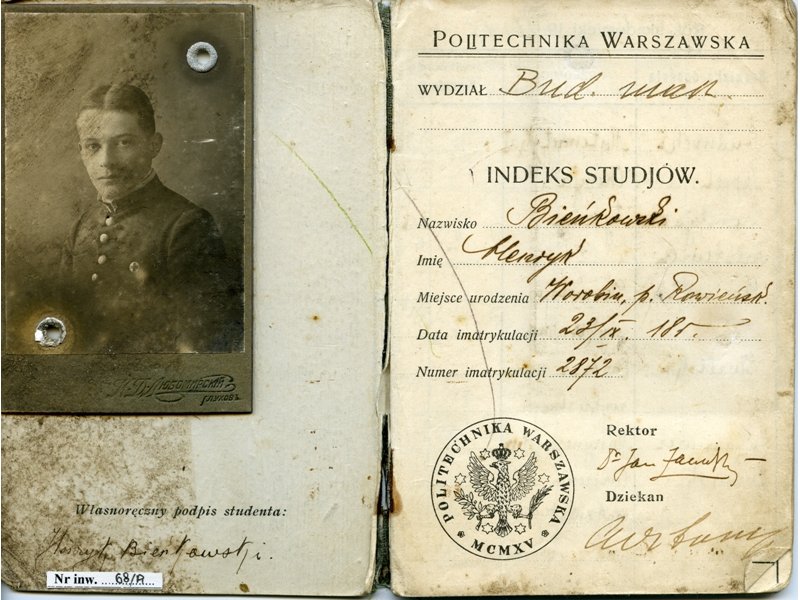 ЛЮБОМИРСКІЙ
ГЛУХОВЪ
Własnoręczny podpis studenta:
Henryk Bieńkowski.
Nr inw. 68/A
POLITECHNIKA WARSZAWSKA
WYDZIAŁ Bud. mach.
INDEKS STUDJÓW.
Nazwisko Bieńkowski
Imię Henryk
Miejsce urodzenia Worobin, p. Rowieńsk.
Data imatrykulacji 23/IX 18 r
Numer imatrykulacji 2872
POLITECHNIKA WARSZAWSKA
MCMXV
Rektor
Dr Jan
Dziekan